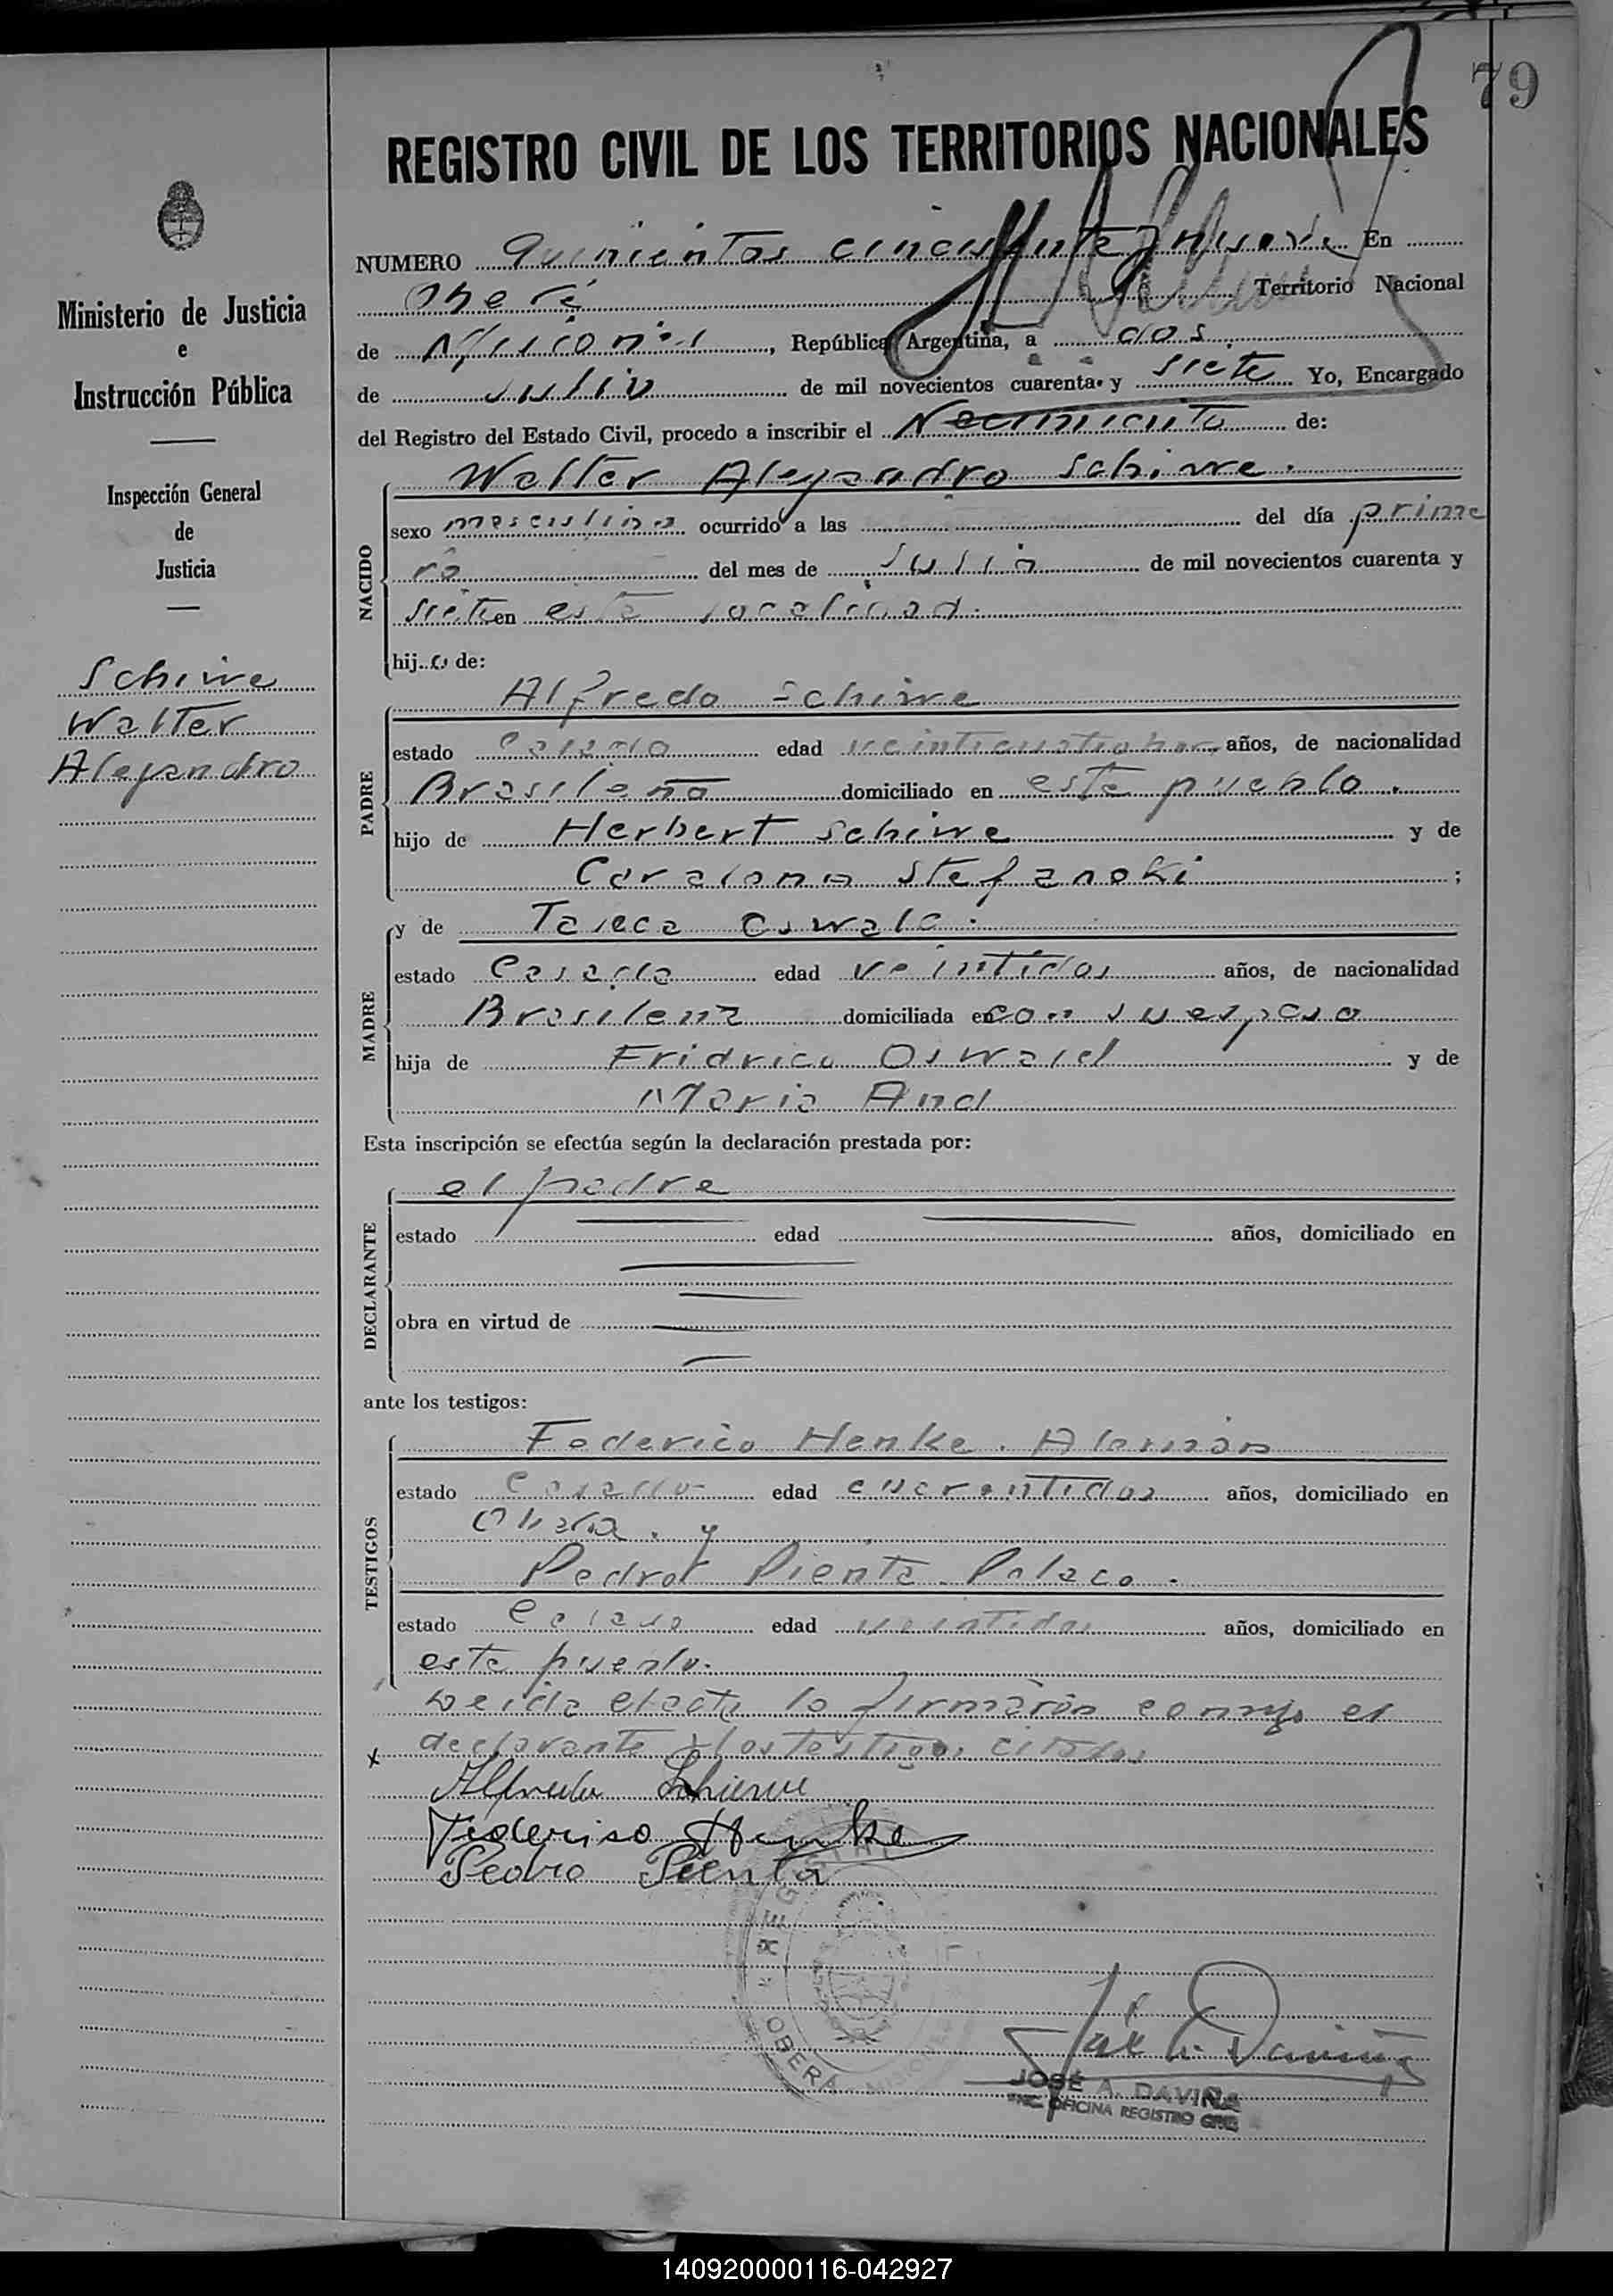 79
REGISTRO CIVIL DE LOS TERRITORIOS NACIONALES
Ministerio de Justicia
e
Instrucción Pública
Inspección General
de
Justicia
Schirre
Walter
Alejandro
NUMERO Quinientos cincuenta y nueve En
Oberá Territorio Nacional
de Misiones, República Argentina, a dos
de Julio de mil novecientos cuarenta y siete Yo, Encargado
del Registro del Estado Civil, procedo a inscribir el Nacimiento de:
NACIDO
Walter Alejandro Schirre.
sexo masculino ocurrido a las del día prime
ro del mes de Julio de mil novecientos cuarenta y
siete en esta localidad.
hijo de:
PADRE
Alfredo Schirre
estado Casado edad años, de nacionalidad
Brasileña domiciliado en este pueblo.
hijo de Herbert Schirre y de
Stefanoki ;
MADRE
y de
estado Casada edad veintidos años, de nacionalidad
Brasilena domiciliada en con su esposo
hija de Fridrico Oswald y de
Maria And
Esta inscripción se efectúa según la declaración prestada por:
DECLARANTE
el padre
estado edad años, domiciliado en
obra en virtud de
ante los testigos:
TESTIGOS
Federico Henke. Alemán
estado Casado edad cuarentidos años, domiciliado en
Oberá. y
Pedro Pienta Polaco.
estado Casado edad veintidos años, domiciliado en
este pueblo.
Leida el acta la firmarón conmigo el
x declarante y los testigos citados
Alfredo Schirre
Federico Henke
Pedro Pienta
OBERÁ MISIONES
JOSÉ A. DAVIÑA
ENC. OFICINA REGISTRO CIVIL
140920000116-042927